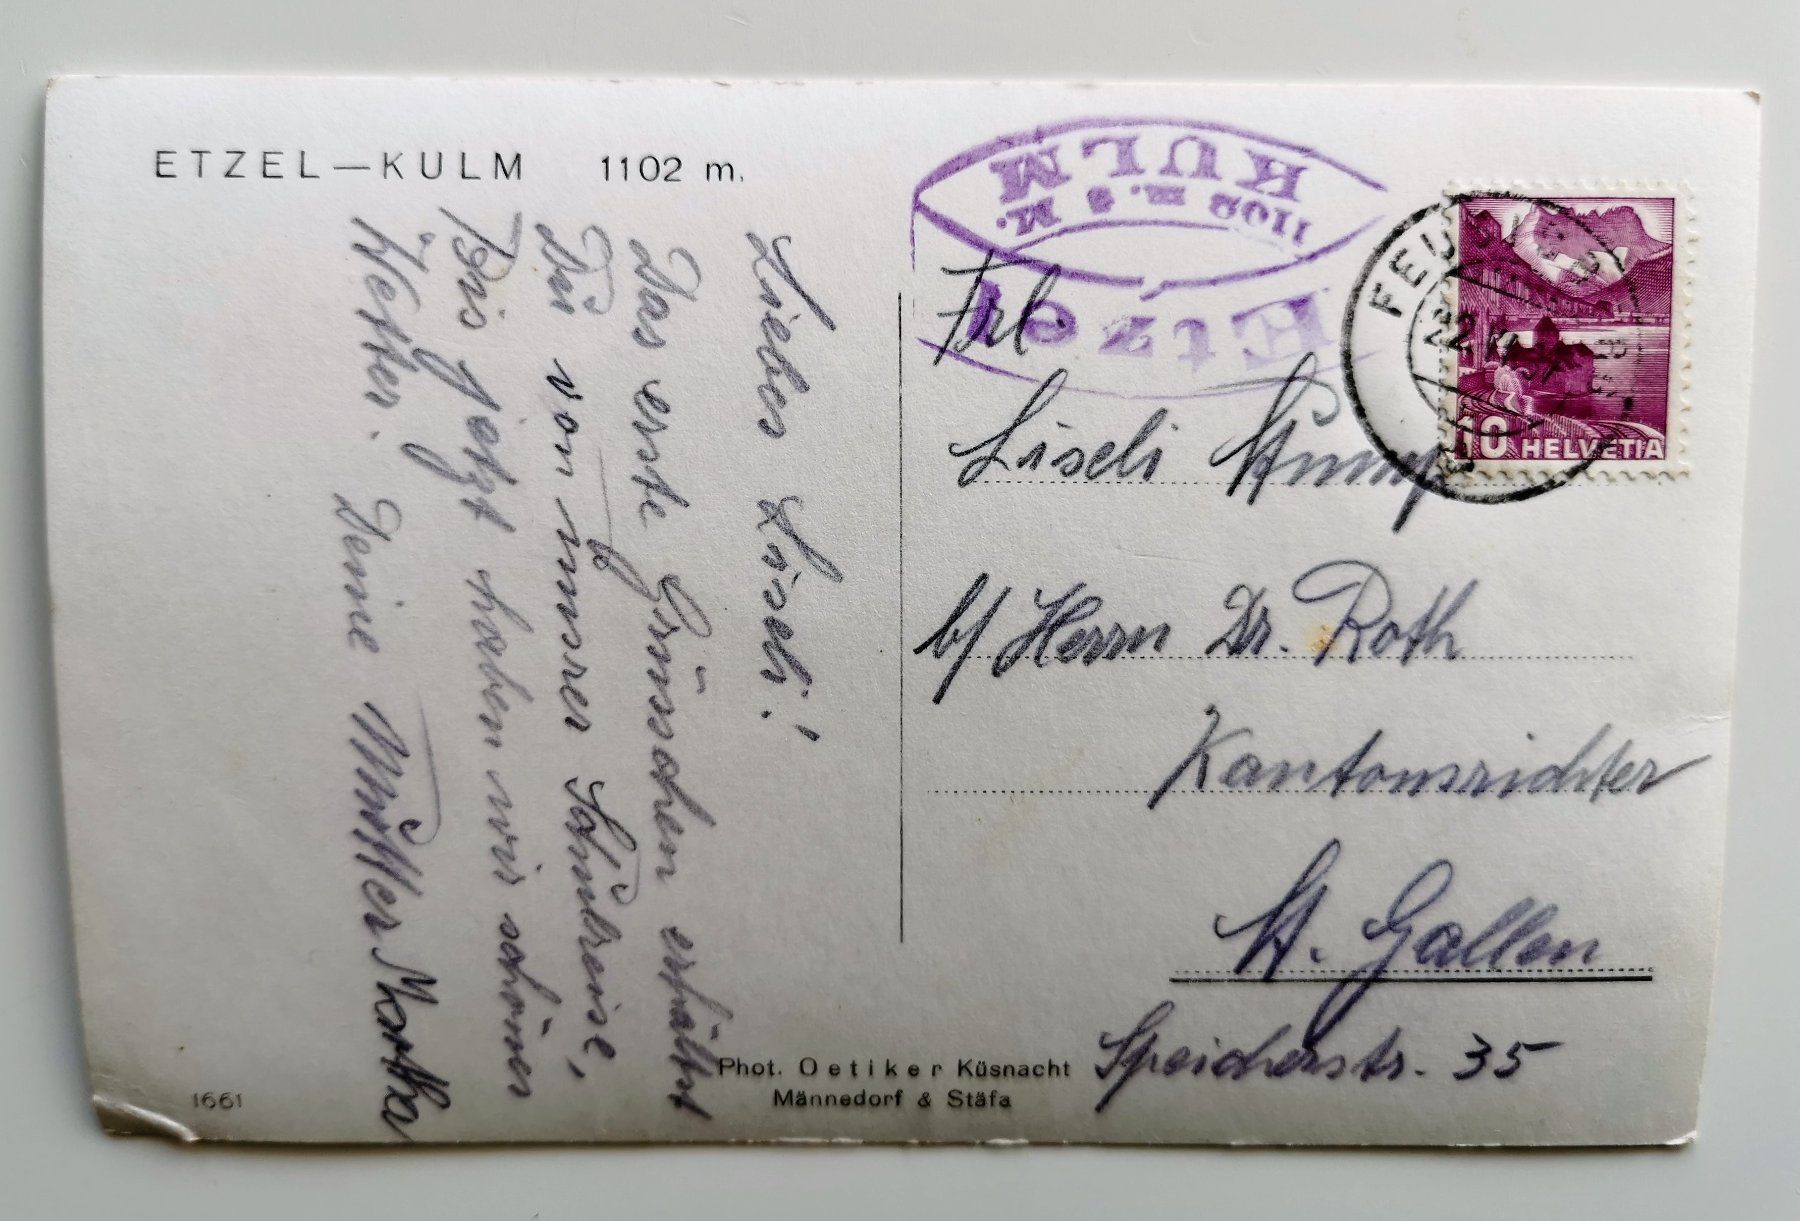 ETZEL—KULM 1102 m.
Liebes Liseli!
Das erste Grüsschen erhältst
Du von unsrer Schulreise,
Bis jetzt haben wir schönes
Wetter. Deine Mutter Martha
KULM
1102 m. ü M.
Etzel
FEUSI
22. VI. 37
10 HELVETIA
Frl.
Liseli Stump
b/ Herrn Dr. Roth
Kantonsrichter
St. Gallen
Speicherstr. 35
Phot. Oetiker Küsnacht
Männedorf & Stäfa
1661